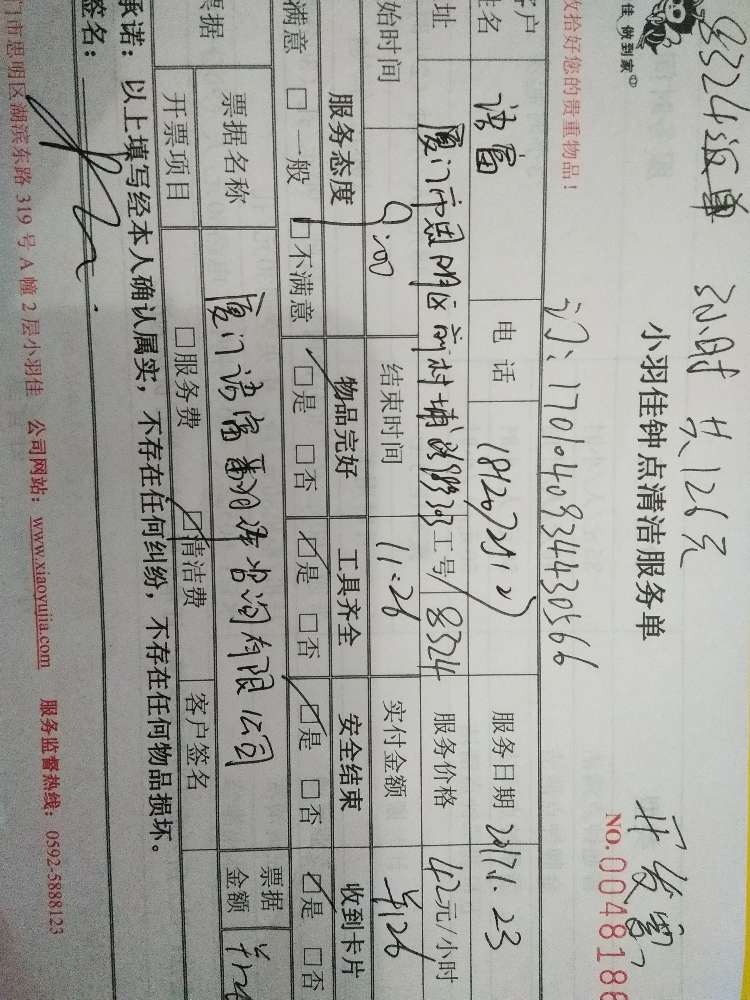 8324派单 3小时 共126元 开发票
佳 做到家
小羽佳钟点清洁服务单
NO.0048186
收拾好您的贵重物品！
订：17010409344430566
客户姓名 诺富 电话 服务日期 2017.1.23
址 厦门市思明区前村埔 工号 8324 服务价格 42元/小时
始时间 9:00 结束时间 11:26 实付金额 126
服务态度 物品完好 工具齐全 安全结束 收到卡片
满意 □一般 □不满意 □是 □否 □是 □否 □是 □否 □是 □否
票据 票据名称 厦门诺富 咨询有限公司 票据金额
开票项目 □服务费 □清洁费 客户签名
承诺：以上填写经本人确认属实，不存在任何纠纷，不存在任何物品损坏。
签名：
门市思明区湖滨东路 319 号 A 幢 2 层小羽佳 公司网站：www.xiaoyujia.com 服务监督热线：0592-5888123